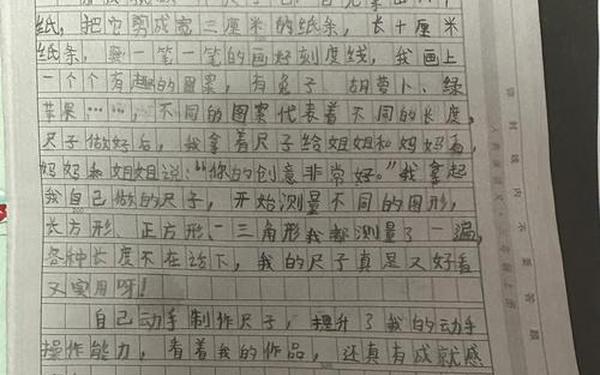 纸,把它剪成宽三厘米的纸条,长十厘米
纸条,一笔一笔的画好刻度线,我画上
一个个有趣的图案,有兔子、胡萝卜、绿
苹果……,不同的图案代表着不同的长度,
尺子做好后,我拿着尺子给姐姐和妈妈看,
妈妈和姐姐说:“你的创意非常好。”我拿起
我自己做的尺子,开始测量不同的图形,
长方形、正方形、三角形我都测量了一遍,
各种长度不在话下,我的尺子真是又好看
又实用呀!
自己动手制作尺子,提升了我的动手
操作能力,看着我的作品,还真有成就感
密封线内不要答题